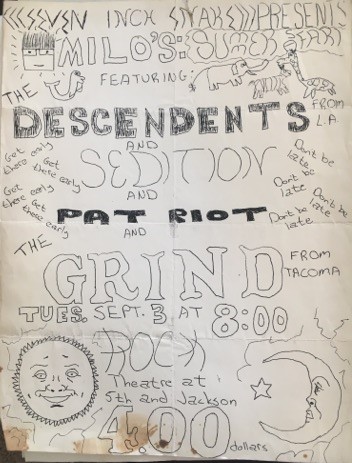 SEVEN INCH SNAKE PRESENTS
MILO'S: SUMMER
FEATURING:
THE
DESCENDENTS
FROM
L.A.
AND
SEDITION
Get there early
Get there early
Get there early
Get there early
Don't be late
Don't be late
Don't be late
Don't be late
AND
PAT RIOT
AND
THE
GRIND
FROM
TACOMA
TUES. SEPT. 3 AT 8:00
ROCK
Theatre at
5th and Jackson
4.00 dollars